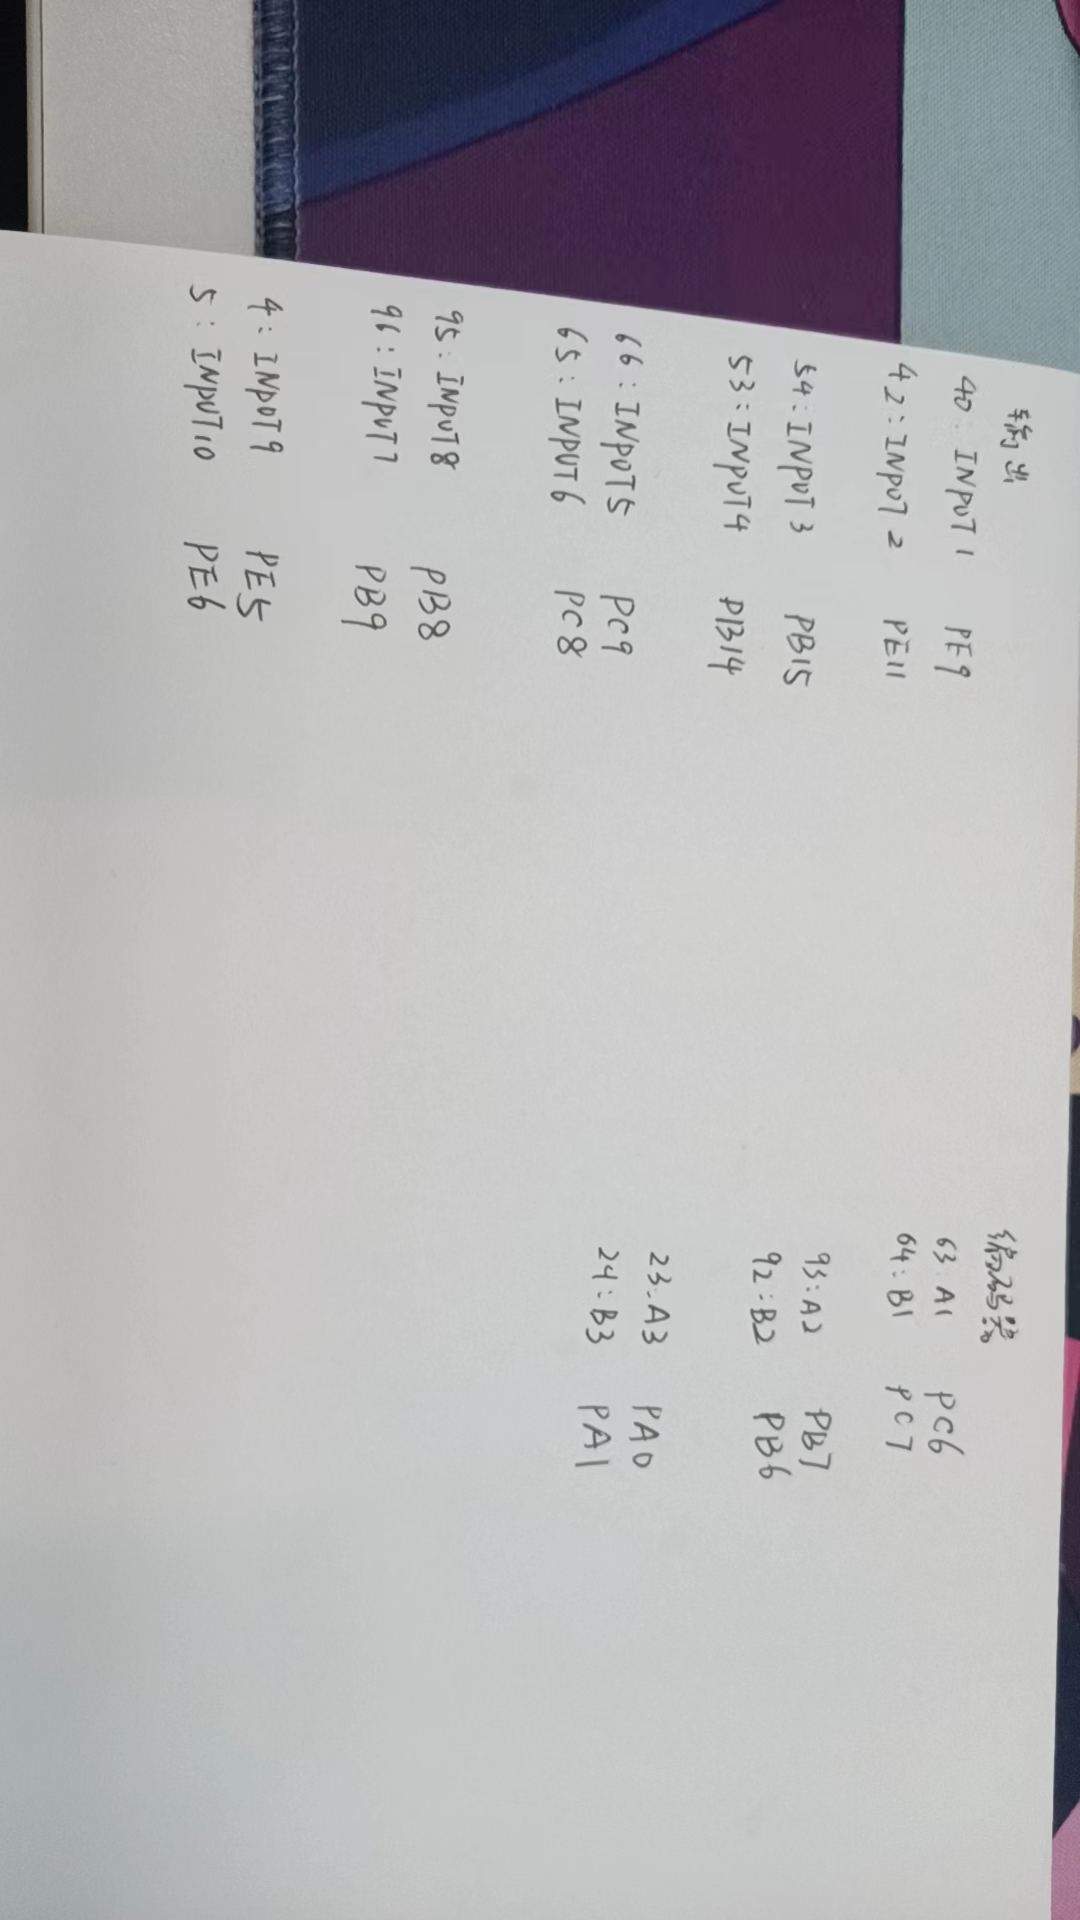 输出
40: INPUT 1 PE9
42: INPUT 2 PE11
54: INPUT 3 PB15
53: INPUT4 PB14
66: INPUT5 PC9
65: INPUT6 PC8
95: INPUT8 PB8
96: INPUT7 PB9
4: INPUT9 PE5
5: INPUT10 PE6
编码器
63: A1 PC6
64: B1 PC7
93: A2 PB7
92: B2 PB6
23: A3 PA0
24: B3 PA1